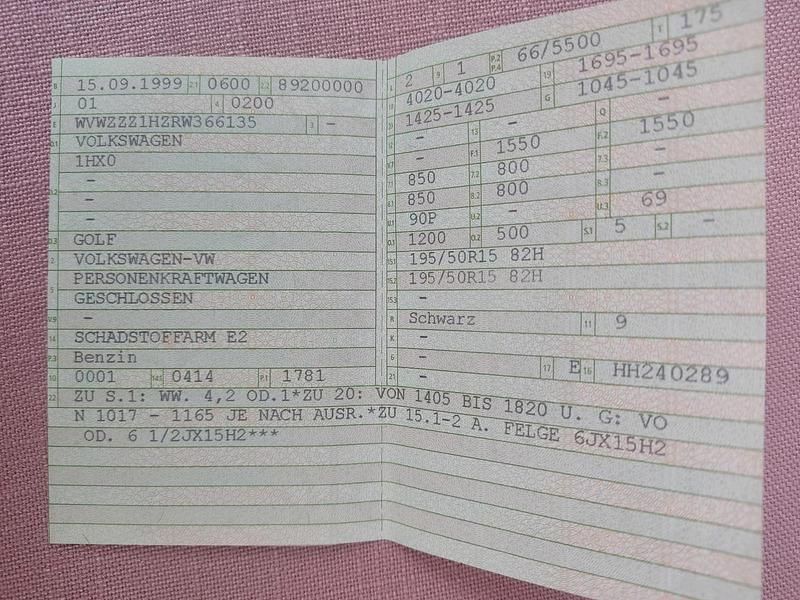 B 15.09.1999 2.1 0600 2.2 89200000
J 01 4 0200
E WVWZZZ1HZRW366135 3 –
D.1 VOLKSWAGEN
1HX0
D.2 –
–
–
D.3 GOLF
2 VOLKSWAGEN-VW
5 PERSONENKRAFTWAGEN
GESCHLOSSEN
V.9 –
14 SCHADSTOFFARM E2
P.3 Benzin
10 0001 14.1 0414 P.1 1781
L 2 9 1 P.2 P.4 66/5500 T 175
18 4020-4020 19 1695-1695
20 1425-1425 G 1045-1045
12 – 13 – Q –
V.7 – F.1 1550 F.2 1550
7.1 850 7.2 800 7.3 –
8.1 850 8.2 800 8.3 –
U.1 90P U.2 – U.3 69
O.1 1200 O.2 500 S.1 5 S.2 –
15.1 195/50R15 82H
15.2 195/50R15 82H
15.3 –
R Schwarz 11 9
K –
6 – 17 E 16 HH240289
21 –
22 ZU S.1: WW. 4,2 OD.1*ZU 20: VON 1405 BIS 1820 U. G: VO
N 1017 - 1165 JE NACH AUSR.*ZU 15.1-2 A. FELGE 6JX15H2
OD. 6 1/2JX15H2***